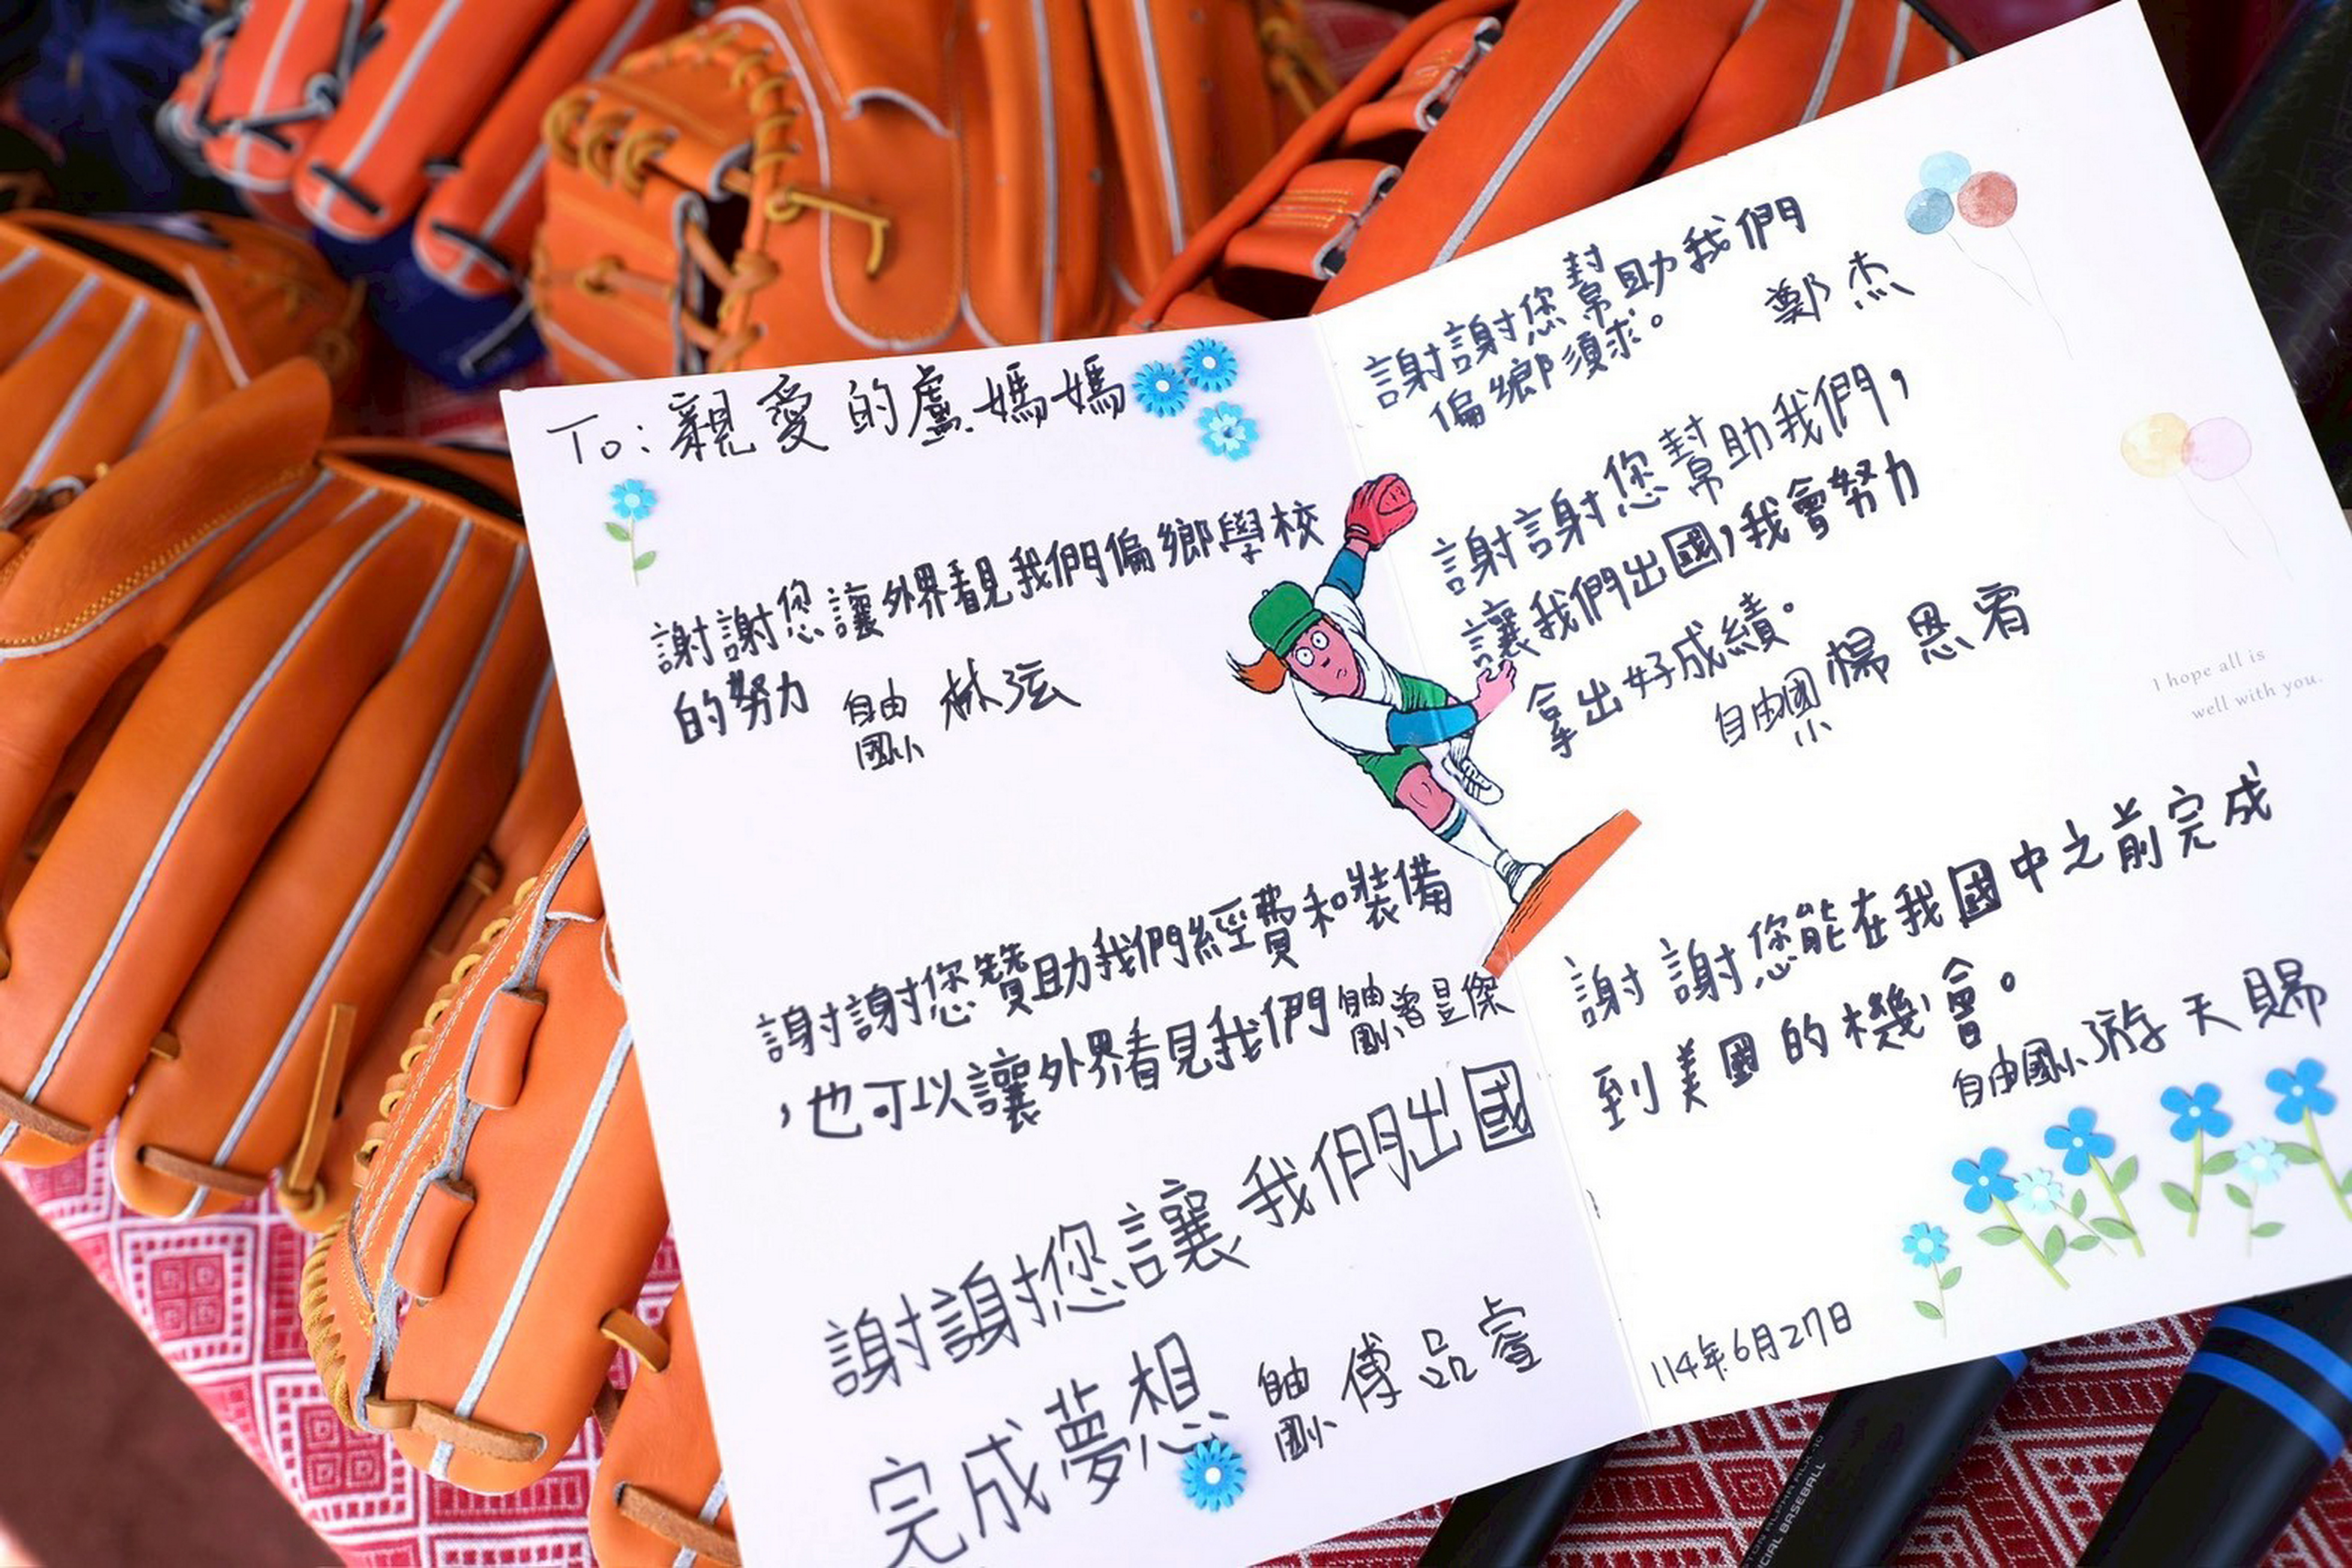 To: 親愛的盧媽媽
謝謝您讓外界看見我們偏鄉學校
的努力
自由
國小
林泫
謝謝您贊助我們經費和裝備
，也可以讓外界看見我們
自由
國小
曾昱傑
謝謝您讓我們出國
完成夢想
自由
國小
傅品睿
謝謝您幫助我們
偏鄉須求。
鄭杰
謝謝您幫助我們，
讓我們出國，我會努力
拿出好成績。
自由國小
楊恩宥
I hope all is
well with you.
謝謝您能在我國中之前完成
到美國的機會。
自由國小游天賜
114年6月27日